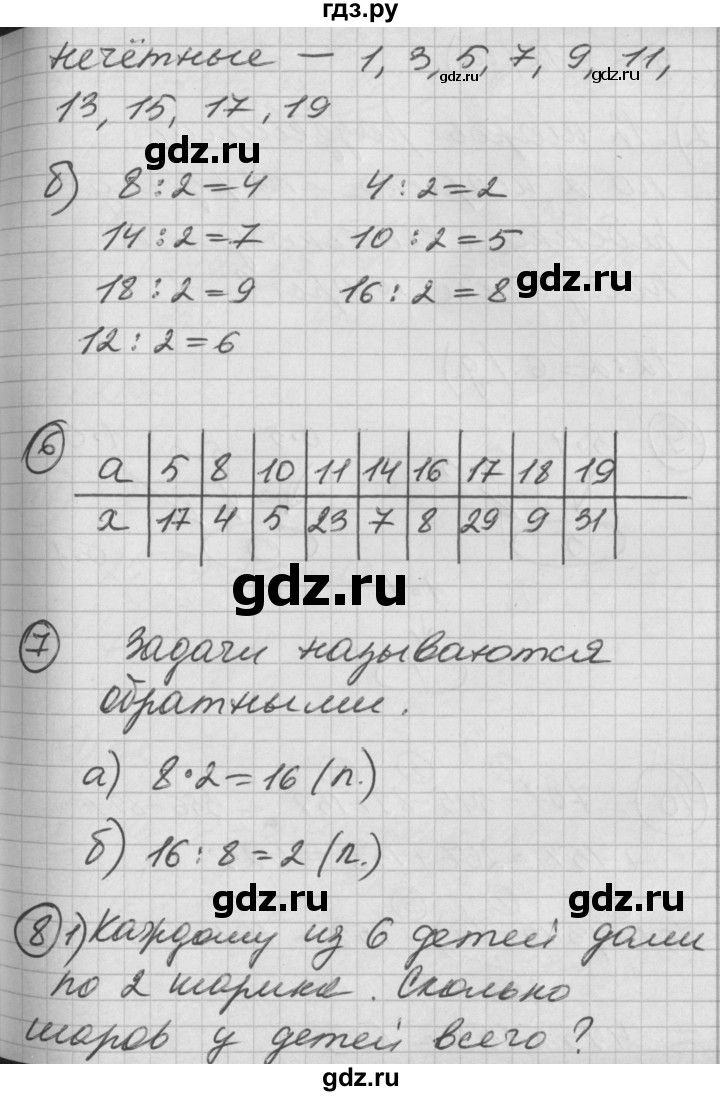 гдз.ру
нечётные — 1, 3, 5, 7, 9, 11,
gdz.ru gdz.ru
13, 15, 17, 19
gdz.ru
б) 8 : 2 = 4 4 : 2 = 2
14 : 2 = 7 10 : 2 = 5
gdz.ru
18 : 2 = 9 16 : 2 = 8
12 : 2 = 6
6 а 5 8 10 11 14 16 17 18 19
х 17 4 5 23 7 8 29 9 31
gdz.ru gdz.ru
7 Задачи называются
обратными.
а) 8 · 2 = 16 (п.)
б) 16 : 8 = 2 (п.)
gdz.ru gdz.ru
8 1) Каждому из 6 детей дали
по 2 шарика. Сколько
шаров у детей всего?
gdz.ru